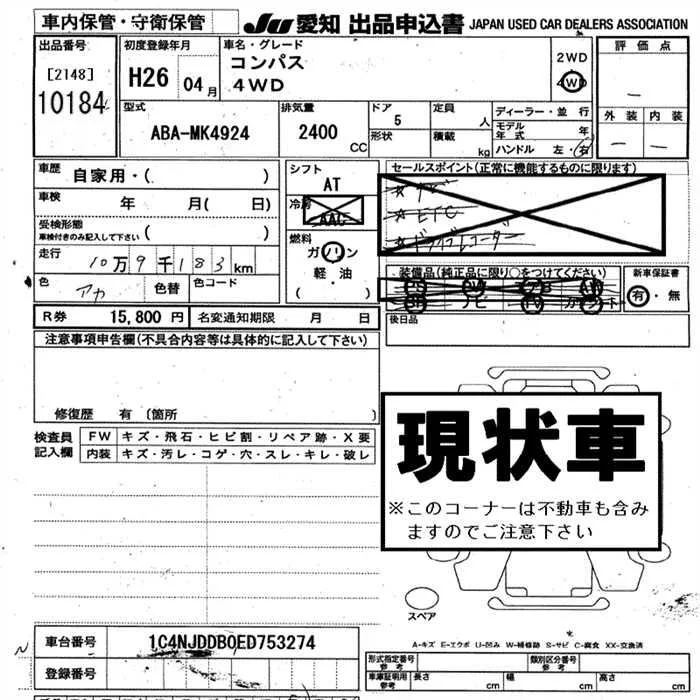 車内保管・守衛保管
JU 愛知 出品申込書 JAPAN USED CAR DEALERS ASSOCIATION
出品番号
[2148]
10184
初度登録年月
H26 04月
車名・グレード
コンパス
4WD
2WD
4WD
評価点
－
外装 内装
－ －
型式
ABA-MK4924
排気量
2400
CC
ドア
5
形状
定員
人
積載
kg
ディーラー・並行
モデル年式 年
ハンドル 左・右
車歴
自家用・( )
車検
年 月( 日)
受検形態
車検付きのみ記入して下さい ( )
走行
10万9千183km
色
アカ
色替
色コード
シフト
AT
冷房
AAC
燃料
ガソリン
軽・油
( )
セールスポイント(正常に機能するものに限ります)
☆ ナビ
☆ ETC
☆ ドライブレコーダー
装備品(純正品に限り○をつけてください)
新車保証書
有・無
後日品
R券 15,800 円 名変通知期限 月 日
注意事項申告欄(不具合内容等は具体的に記入して下さい)
修復歴 有 〔箇所 〕
検査員
記入欄
FW キズ・飛石・ヒビ割・リペア跡・X要
内装 キズ・汚レ・コゲ・穴・スレ・キレ・破レ
現状車
※このコーナーは不動車も含み
ますのでご注意下さい
スペア
A-キズ E-エクボ U-凹み W-補修跡 S-サビ C-腐食 XX-交換済
車台番号
1C4NJDDB0ED753274
登録番号
形式指定番号
参考
類別区分番号
参考
車庫証明用
参考
長さ cm 幅 cm 高さ cm